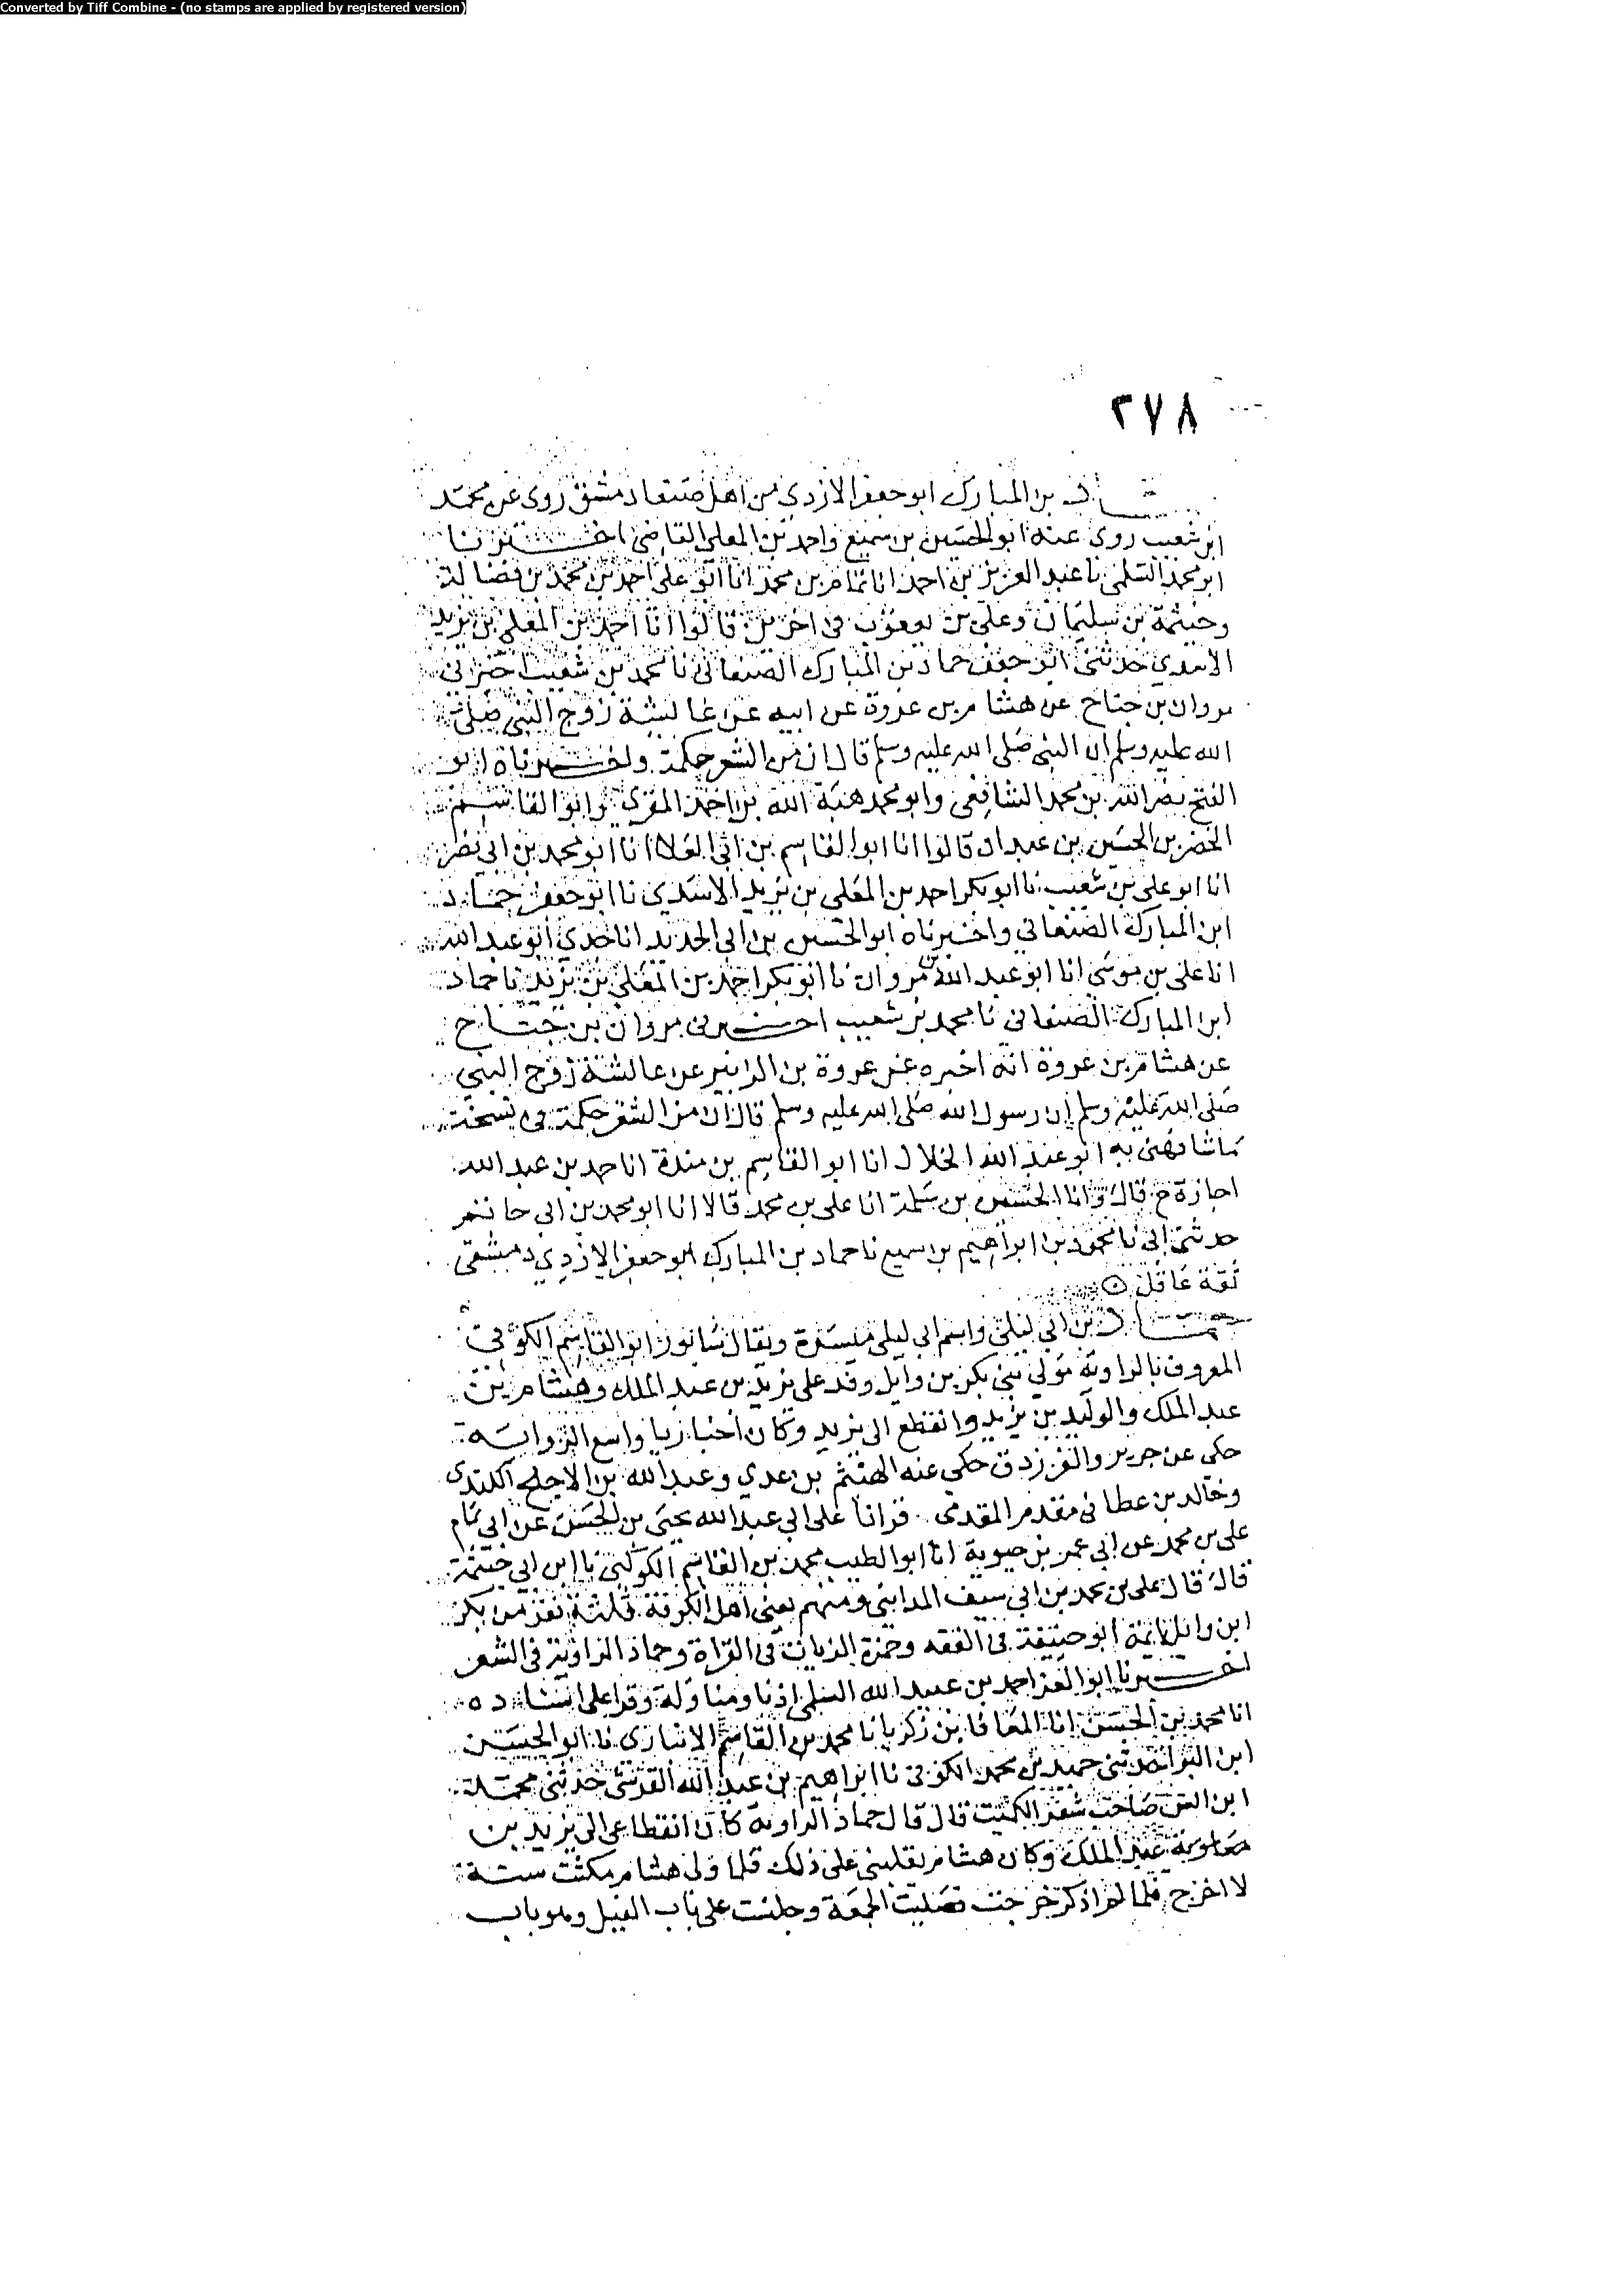 Converted by Tiff Combine - (no stamps are applied by registered version)
٢٧٨
بن المبارك ابو جعفر الازدي من اهل صنعا دمشق روى عن محمد
ابن شعيب روى عنه ابو الحسين بن سميع واحمد بن المعلى القاضي اخبرنا
ابو محمد السلمي نا عبد العزيز بن احمد انا تمام بن محمد انا ابو علي احمد بن محمد بن فضالة
وخيثمة بن سليمان وعلي بن يعقوب في اخرين قالوا انا احمد بن المعلى بن يزيد
الاسدي حدثني ابو جعفر حماد بن المبارك الصنعاني نا محمد بن شعيب اخبرني
مروان بن جناح عن هشام بن عروة عن ابيه عن عائشة زوج النبي صلى
الله عليه وسلم ان النبي صلى الله عليه وسلم قال ان من الشعر حكمة واخبرناه ابو
الفتح نصر الله بن محمد الشافعي وابو محمد هبة الله بن احمد المقري وابو القاسم
الخضر بن الحسين بن عبدان قالوا انا ابو القاسم بن ابي العلاا انا ابو محمد بن ابي نصر
انا ابو علي بن شعيب نا ابو بكر احمد بن المعلى بن يزيد الاسدي نا ابو جعفر حماد
ابن المبارك الصنعاني واخبرناه ابو الحسين بن ابي الحديد انا جدي ابو عبد الله
انا علي بن موسى انا ابو عبد الله بن مروان نا ابو بكر احمد بن المعلى بن يزيد نا حماد
ابن المبارك الصنعاني نا محمد بن شعيب اخبرني مروان بن جناح
عن هشام بن عروة انه اخبره عن عروة بن الزبير عن عائشة زوج النبي
صلى الله عليه وسلم ان رسول الله صلى الله عليه وسلم قال ان من الشعر حكمة في نسخة
ما شافهني به ابو عبد الله الخلال انا ابو القاسم بن مندة انا حمد بن عبد الله
اجازة ح قال وانا الحسين بن سلمة انا علي بن محمد قالا انا ابو محمد بن ابي حاتم
حدثني ابي نا محمود بن ابراهيم بن سميع نا حماد بن المبارك ابو جعفر الازدي دمشقي
ثقة عاقل
حماد بن ابي ليلى واسم ابي ليلى ميسرة ويقال سابور ابو القاسم الكوفي
المعروف بالراوية مولى بني بكر بن وايل وفد على يزيد بن عبد الملك وهشام بن
عبد الملك والوليد بن يزيد وانقطع الى يزيد وكان اخباريا واسع الرواية
حكى عن جرير والفرزدق حكى عنه الهيثم بن عدي وعبد الله بن الاجلح الكندي
وخالد بن عطا بن مقدم المقدمي قرانا على ابي عبد الله يحيى بن الحسن عن ابي تمام
علي بن محمد عن ابي عمر بن حيوية انا ابو الطيب محمد بن القاسم الكوكبي نا ابن ابي خيثمة
قال قال علي بن محمد بن ابي سيف المدايني ومنهم يعني اهل الكوفة ثلثة نفر من بكر
ابن وائل ائمة ابو حنيفة في الفقه وحمزة الزيات في القراة وحماد الراوية في الشعر
اخبرنا ابو العز احمد بن عبيد الله السلمي اذنا ومناولة وقرا علي اسناده
انا محمد بن الحسين انا المعافا بن زكريا نا محمد بن القاسم الانباري نا ابو الحسين
ابن البرا حدثني حميد بن محمد الكوفي نا ابراهيم بن عبد الله القرشي حدثني محمد
ابن انس صاحب شعر الكميت قال قال حماد الراوية كان انقطاعي الى يزيد بن
معاوية عبد الملك وكان هشام يقليني على ذلك فلما ولي هشام مكثت سنة
لا اخرج فلما لم اذكر خرجت فصليت الجمعة وجلست على باب الفيل وهو باب